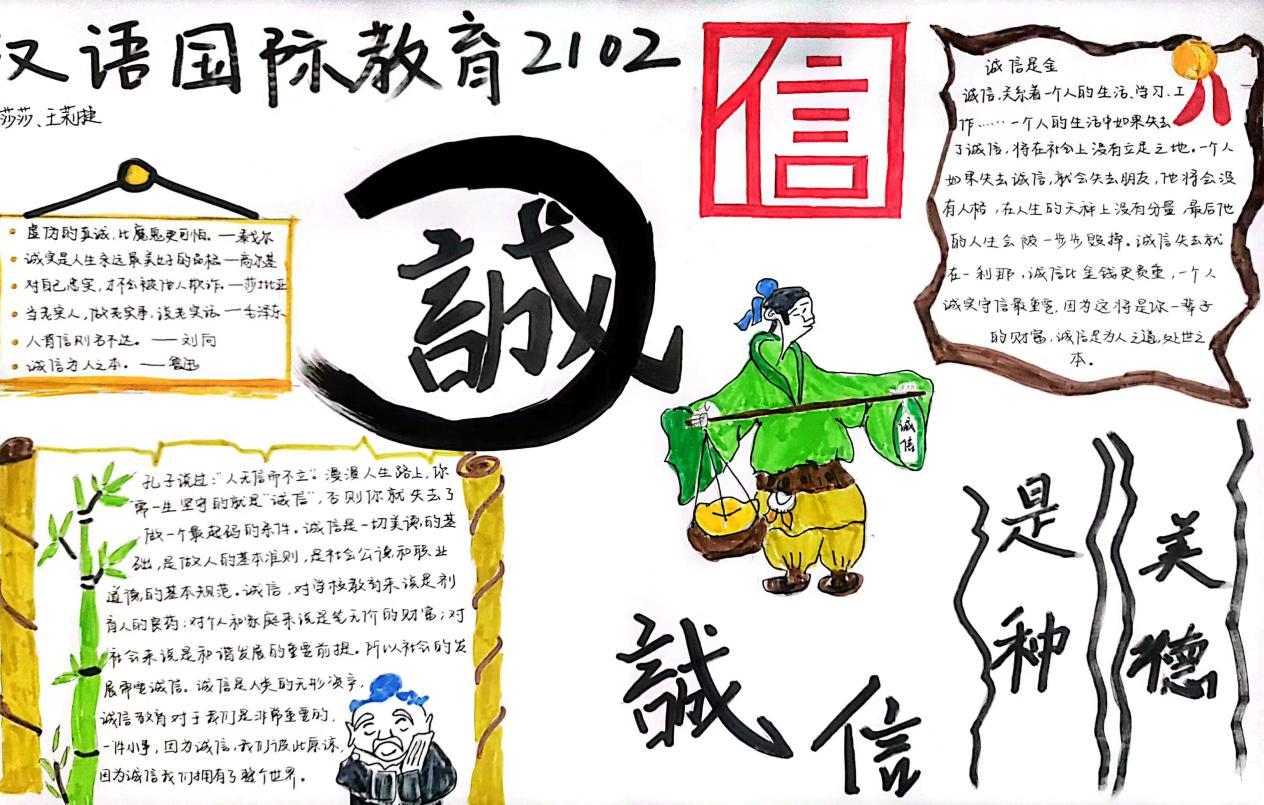 汉语国际教育2102
莎莎、王莉捷
虚伪的真诚，比魔鬼更可怕。—泰戈尔
诚实是人生永远最美好的品格—高尔基
对自己忠实，才不会被他人欺诈。—莎士比亚
当老实人，做老实事，说老实话。—毛泽东
人背信则名不达。——刘向
诚信为人之本。——鲁迅
誠
信
诚信是金
诚信，关系着一个人的生活、学习、工
作……一个人的生活中如果失去
了诚信，将在社会上没有立足之地。一个人
如果失去诚信，就会失去朋友，他将会没
有人格，在人生的天秤上没有分量，最后他
的人生会被一步步毁掉。诚信失去就
在一刹那，诚信比金钱更贵重，一个人
诚实守信最重要，因为这将是你一辈子
的财富，诚信是为人之道，处世之
本。
诚信
孔子说过：“人无信而不立”。漫漫人生路上，你
第一坚守的就是“诚信”，否则你就失去了
做一个最起码的条件。诚信是一切美德的基
础，是做人的基本准则，是社会公德和职业
道德的基本规范。诚信，对学校教育来说是
育人的良药；对个人和家庭来说是笔无价的财富；对
社会来说是和谐发展的重要前提。所以社会的发
展需要诚信。诚信是人类的无形资产，
诚信教育对于我们是非常重要的，
一件小事，因为诚信，我们彼此原谅，
因为诚信我们拥有了整个世界。
誠信
是种
美德